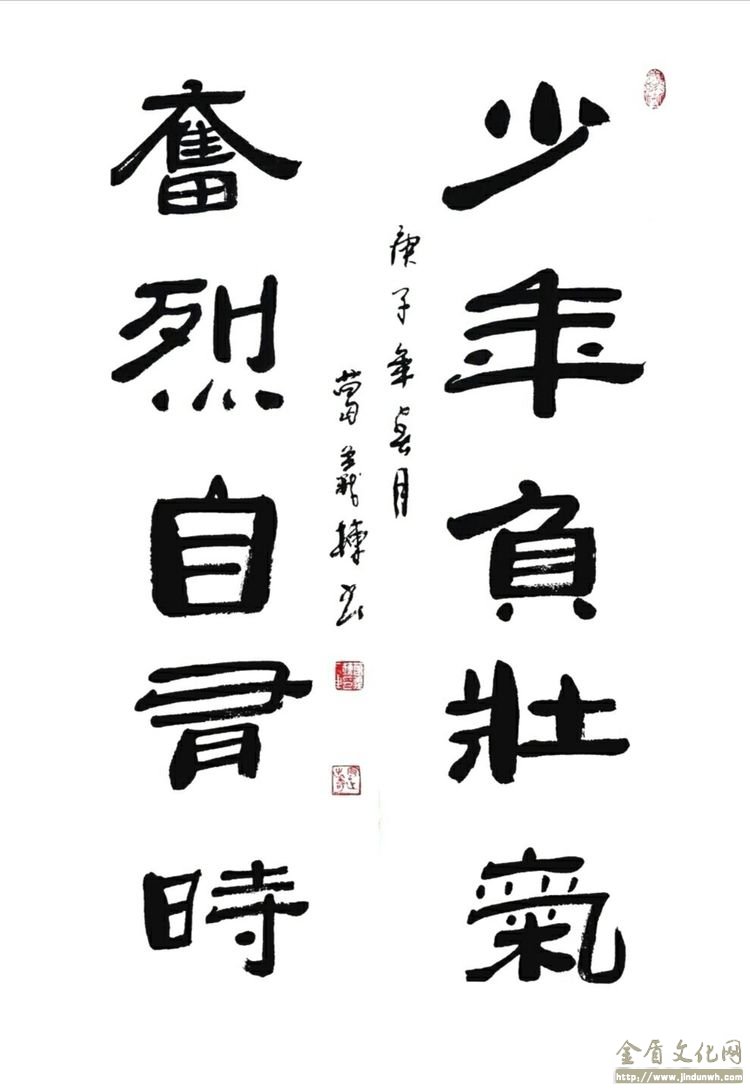 少年負壯氣
奮烈自有時
庚子年春月
書
金盾文化网
http://www.jindunwh.com